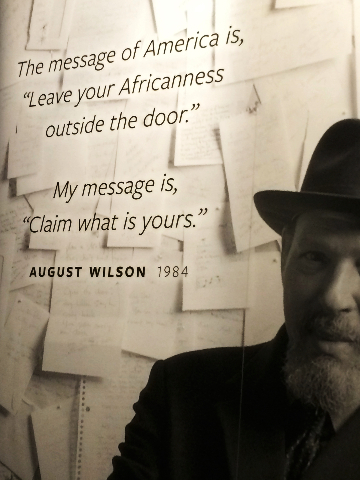 The message of America is,
“Leave your Africanness
outside the door.”
My message is,
“Claim what is yours.”
AUGUST WILSON 1984